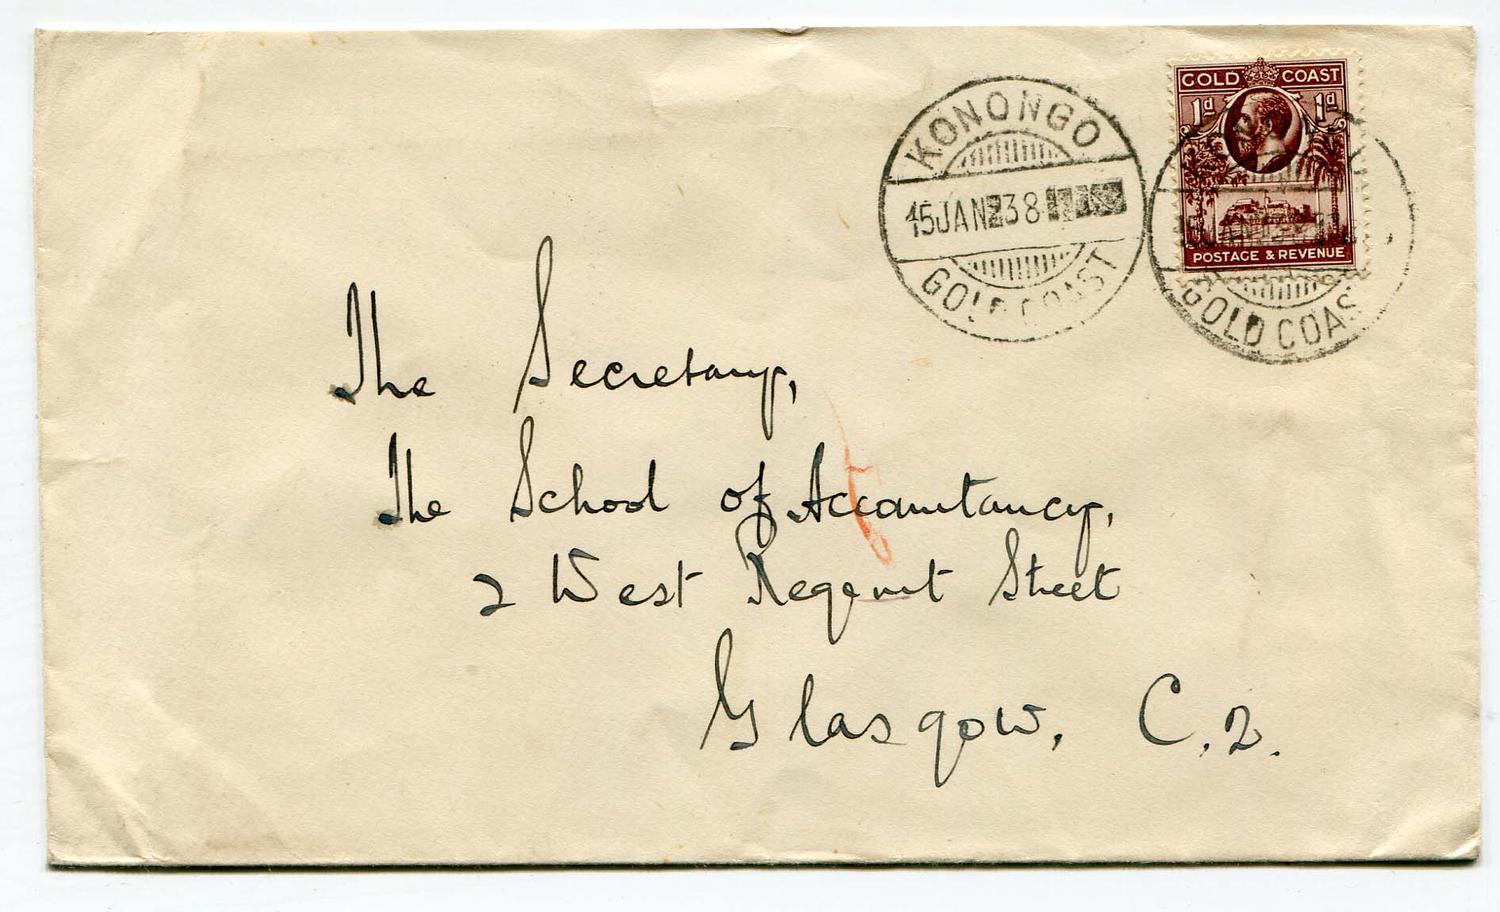 KONONGO
15 JAN 38
GOLD COAST
GOLD COAST
1d 1d
POSTAGE & REVENUE
GOLD COAS
The Secretary,
The School of Accountancy,
2 West Regent Street
Glasgow, C.2.